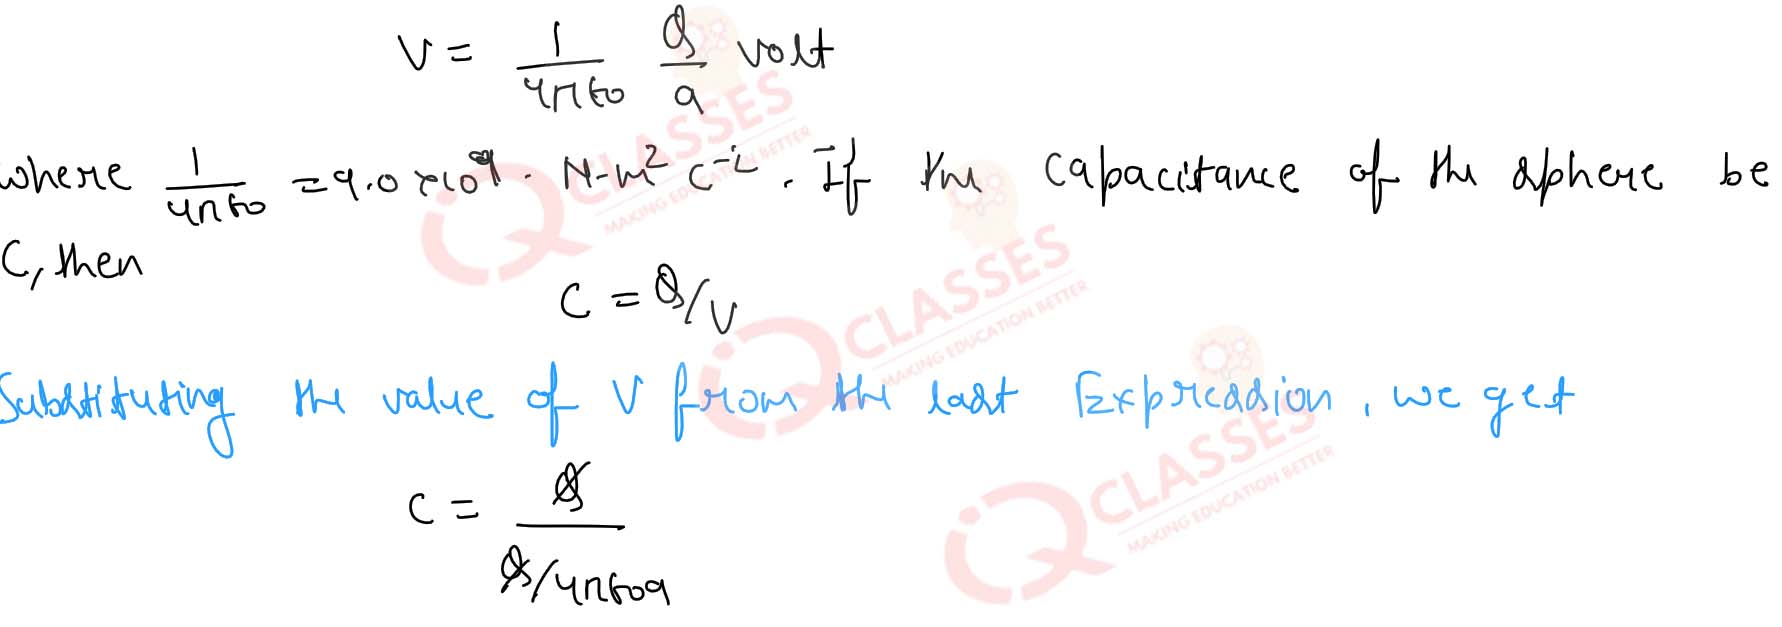 V = 1/4πε0 Q/a volt
where 1/4πε0 = 9.0 × 10⁹ . N-m² C⁻² . If the capacitance of the sphere be
C, then
C = Q/V
Substituting the value of V from the last Expression, we get
C = Q / Q/4πε0a
IQ CLASSES
MAKING EDUCATION BETTER
IQ CLASSES
MAKING EDUCATION BETTER
IQ CLASSES
MAKING EDUCATION BETTER